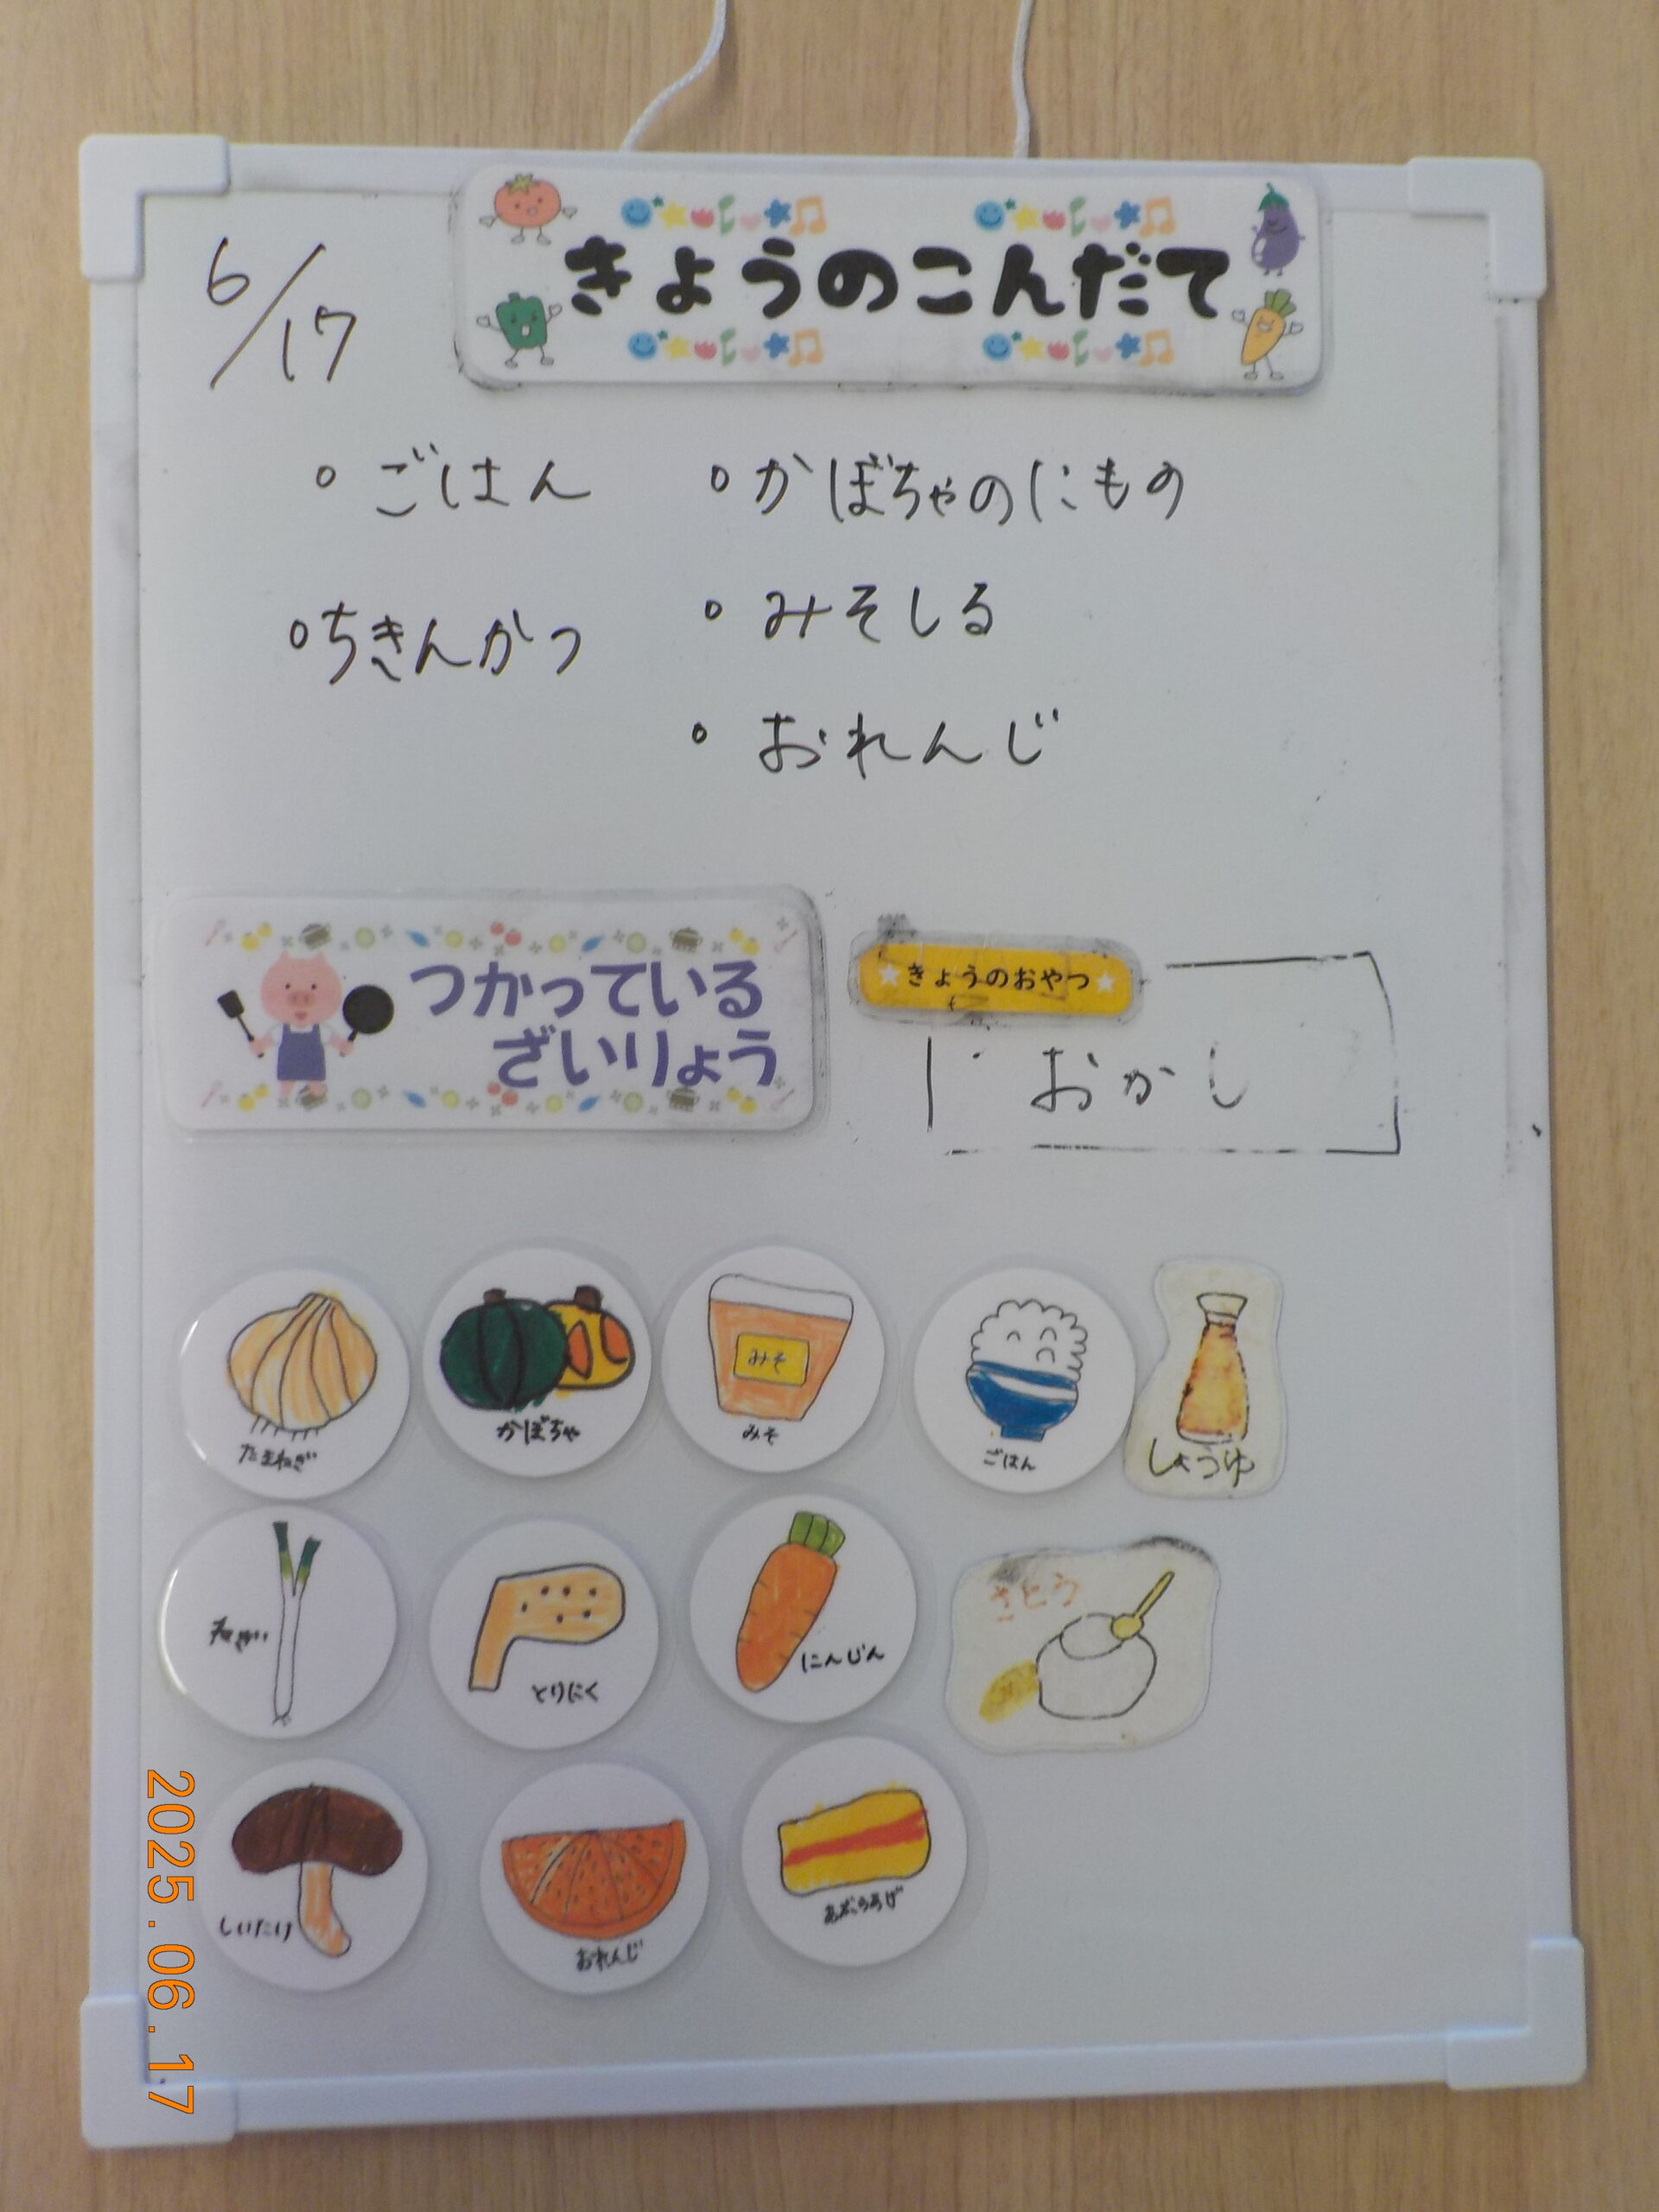 6/17
きょうのこんだて
・ごはん
・ちきんかつ
・かぼちゃのにもの
・みそしる
・おれんじ
つかっている
ざいりょう
★きょうのおやつ★
おかし
たまねぎ
かぼちゃ
みそ
みそ
ごはん
しょうゆ
ねぎ
とりにく
にんじん
さとう
しいたけ
おれんじ
あぶらあげ
2025.06.17